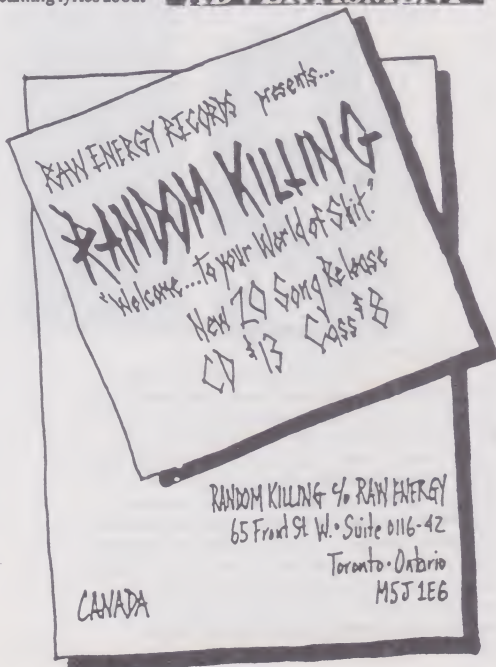 ADVERTISEMENT
RAW ENERGY RECORDS presents...
RANDOM KILLING
"Welcome...To your World of Shit."
New 20 Song Release
CD $13 Cass $8
RANDOM KILLING c/o RAW ENERGY
65 Front St W. • Suite 0116-42
Toronto • Ontario
M5J 1E6
CANADA